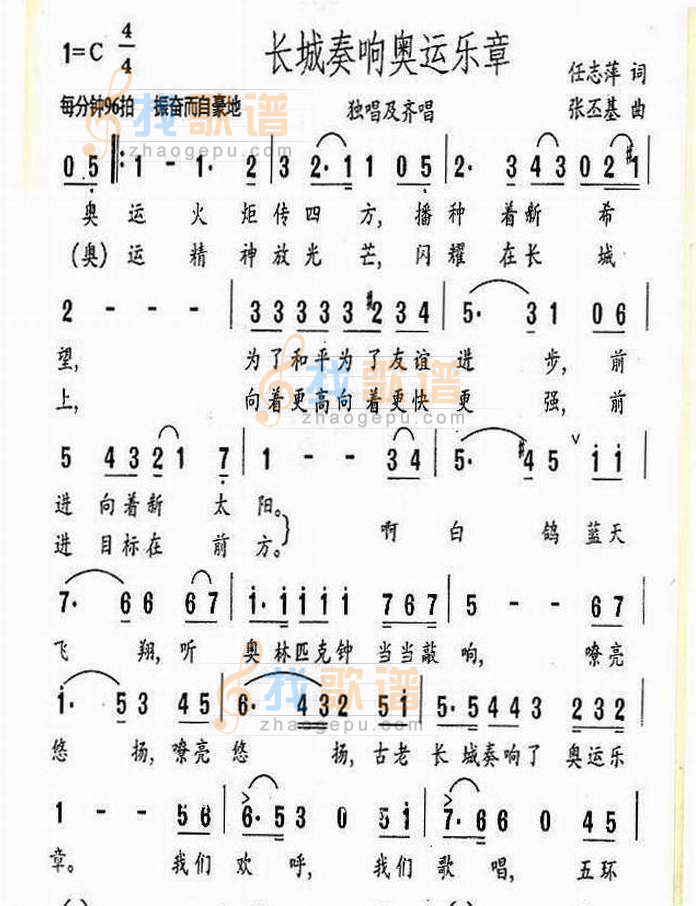 1=C 4/4 长城奏响奥运乐章 任志萍 词
每分钟96拍 振奋而自豪地 独唱及齐唱 张丕基 曲
找歌谱
zhaogepu.com
0 5 ‖: 1 - 1· 2 | 3 2·1 1 0 5 | 2· 3 4 3 0 2 #1 |
奥运火炬传四方,播种着新希
(奥)运精神放光芒,闪耀在长城
2 - - - | 3 3 3 3 3 #2 3 4 | 5· 3 1 0 6 |
望, 为了和平为了友谊进步,前
上, 向着更高向着更快更强,前
找歌谱
zhaogepu.com
5 4 3 2 1 7 | 1 - - 3 4 | 5· #4 5 ∨ i i |
进向着新太阳。
进目标在前方。} 啊白鸽蓝天
7· 6 6 6 7 | i· i i i i 7 6 7 | 5 - - 6 7 |
飞翔,听奥林匹克钟当当敲响,嘹亮
i· 5 3 4 5 | 6· 4 3 2 5 i | 5·5 4 4 3 2 3 2 |
找歌谱
zhaogepu.com
悠扬,嘹亮悠扬,古老长城奏响了奥运乐
1 - - 5 6 | 6·5 3 0 5 i | 7·6 6 0 4 5 |
章。我们欢呼,我们歌唱,五环